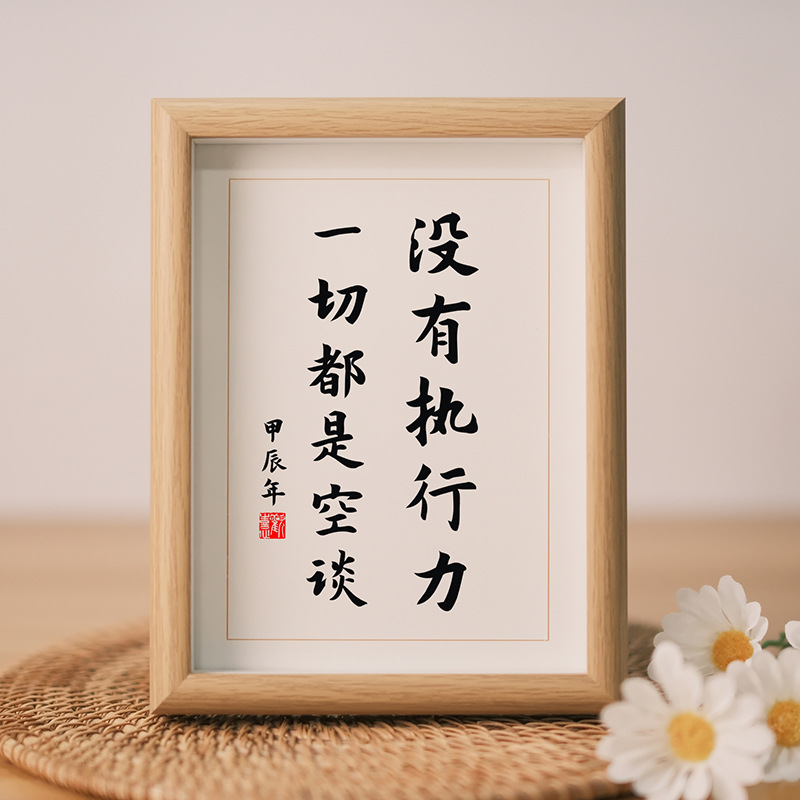 没有执行力
一切都是空谈
甲辰年